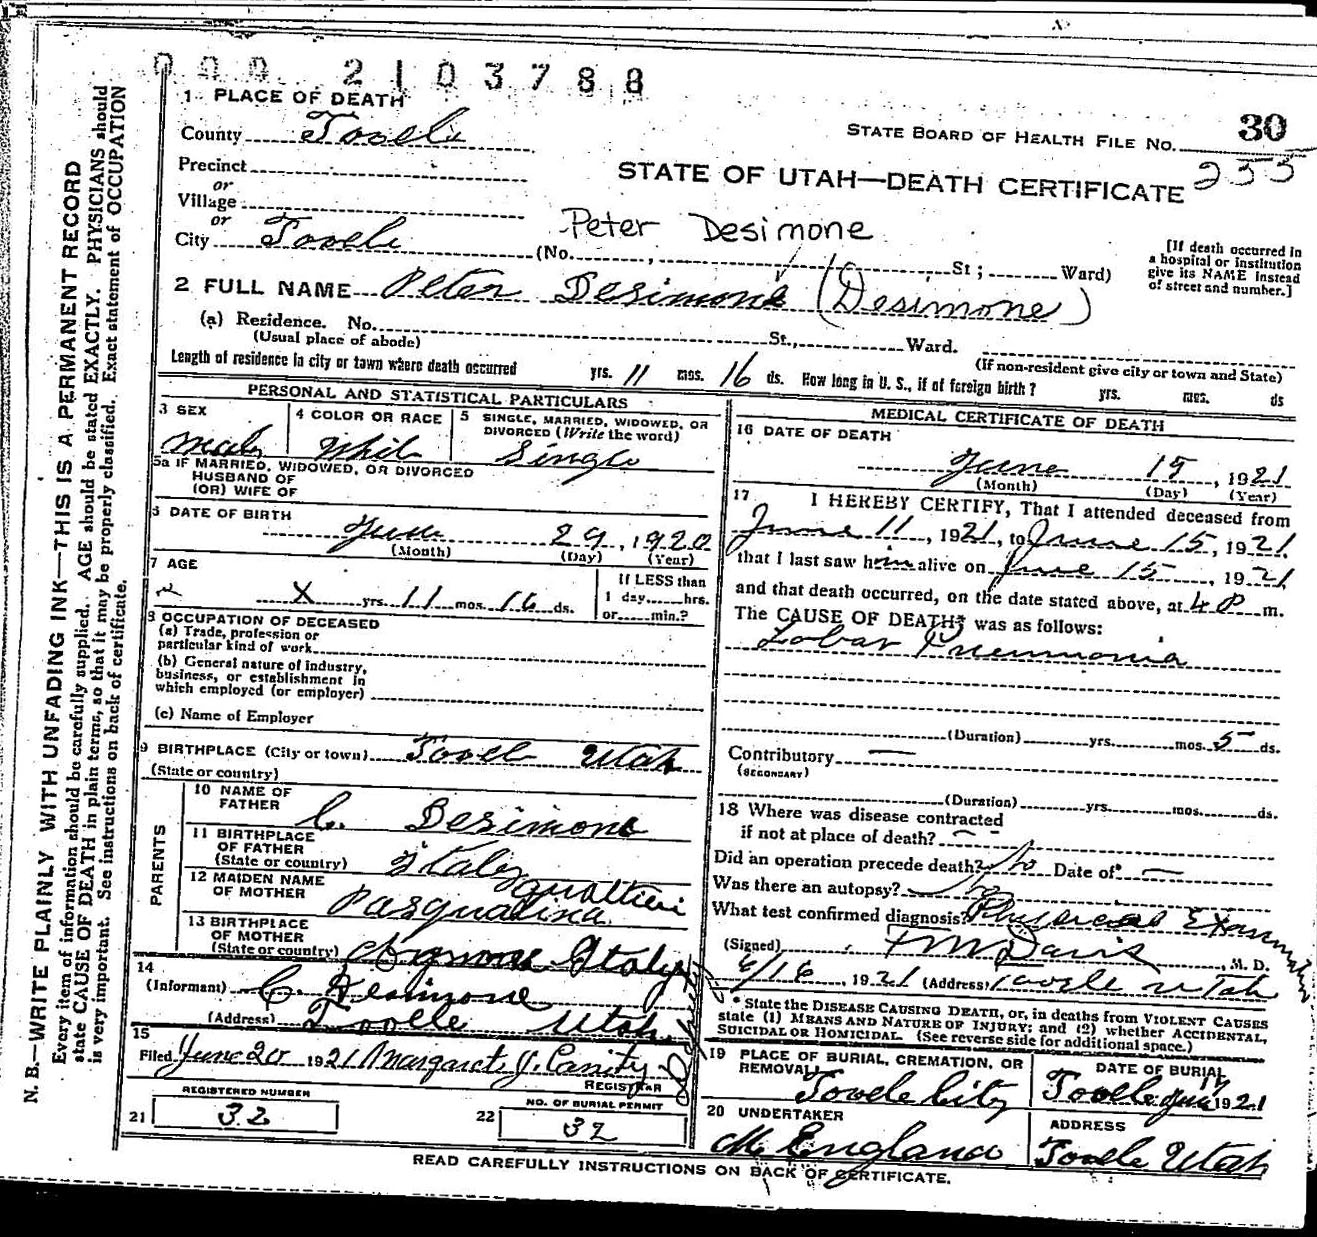 000 2103788
1 PLACE OF DEATH
County Tooele
STATE BOARD OF HEALTH FILE NO. 30
255
Precinct
STATE OF UTAH—DEATH CERTIFICATE
or
Village
or
Peter Desimone
City Tooele (No. , St ; Ward)
[If death occurred in
a hospital or institution
give its NAME instead
of street and number.]
2 FULL NAME Peter Desimone (Desimone)
(a) Residence. No. St., Ward.
(Usual place of abode)
(If non-resident give city or town and State)
Length of residence in city or town where death occurred yrs. 11 mos. 16 ds. How long in U. S., if of foreign birth? yrs. mos. ds
PERSONAL AND STATISTICAL PARTICULARS
3 SEX
Male
4 COLOR OR RACE
White
5 SINGLE, MARRIED, WIDOWED, OR
DIVORCED (Write the word)
Single
5a IF MARRIED, WIDOWED, OR DIVORCED
HUSBAND OF
(OR) WIFE OF
6 DATE OF BIRTH
June 29, 1920
(Month) (Day) (Year)
7 AGE
X yrs. 11 mos. 16 ds.
If LESS than
1 day hrs.
or min.?
8 OCCUPATION OF DECEASED
(a) Trade, profession or
particular kind of work
(b) General nature of industry,
business, or establishment in
which employed (or employer)
(c) Name of Employer
9 BIRTHPLACE (City or town) Tooele Utah
(State or country)
PARENTS
10 NAME OF
FATHER C. Desimone
11 BIRTHPLACE
OF FATHER
(State or country) Italy
12 MAIDEN NAME
OF MOTHER Pasqualina Gualtieri
13 BIRTHPLACE
OF MOTHER
(State or country) Italy
14
(Informant) C. Desimone
(Address) Tooele Utah
15
Filed June 20 1921 Margaret J.
REGISTRAR
REGISTERED NUMBER
21 32
NO. OF BURIAL PERMIT
22 32
MEDICAL CERTIFICATE OF DEATH
16 DATE OF DEATH
June 15, 1921
(Month) (Day) (Year)
17 I HEREBY CERTIFY, That I attended deceased from
June 11, 1921, to June 15, 1921.
that I last saw him alive on June 15, 1921
and that death occurred, on the date stated above, at 4 P m.
The CAUSE OF DEATH* was as follows:
Lobar Pneumonia
(Duration) yrs. mos. 5 ds.
Contributory —
(SECONDARY)
(Duration) yrs. mos. ds.
18 Where was disease contracted
if not at place of death? —
Did an operation precede death? No Date of —
Was there an autopsy? No
What test confirmed diagnosis? Physical Examination
(Signed) F M Davis, M. D.
6/16, 1921 (Address) Tooele Utah
* State the DISEASE CAUSING DEATH, or, in deaths from VIOLENT CAUSES
state (1) MEANS AND NATURE OF INJURY; and (2) whether ACCIDENTAL,
SUICIDAL OR HOMICIDAL. (See reverse side for additional space.)
19 PLACE OF BURIAL, CREMATION, OR
REMOVAL
Tooele City
DATE OF BURIAL
Tooele June 17 1921
20 UNDERTAKER
M England
ADDRESS
Tooele Utah
READ CAREFULLY INSTRUCTIONS ON BACK OF CERTIFICATE.
N. B.—WRITE PLAINLY WITH UNFADING INK—THIS IS A PERMANENT RECORD
Every item of information should be carefully supplied. AGE should be stated EXACTLY. PHYSICIANS should
state CAUSE OF DEATH in plain terms, so that it may be properly classified. Exact statement of OCCUPATION
is very important. See instructions on back of certificate.